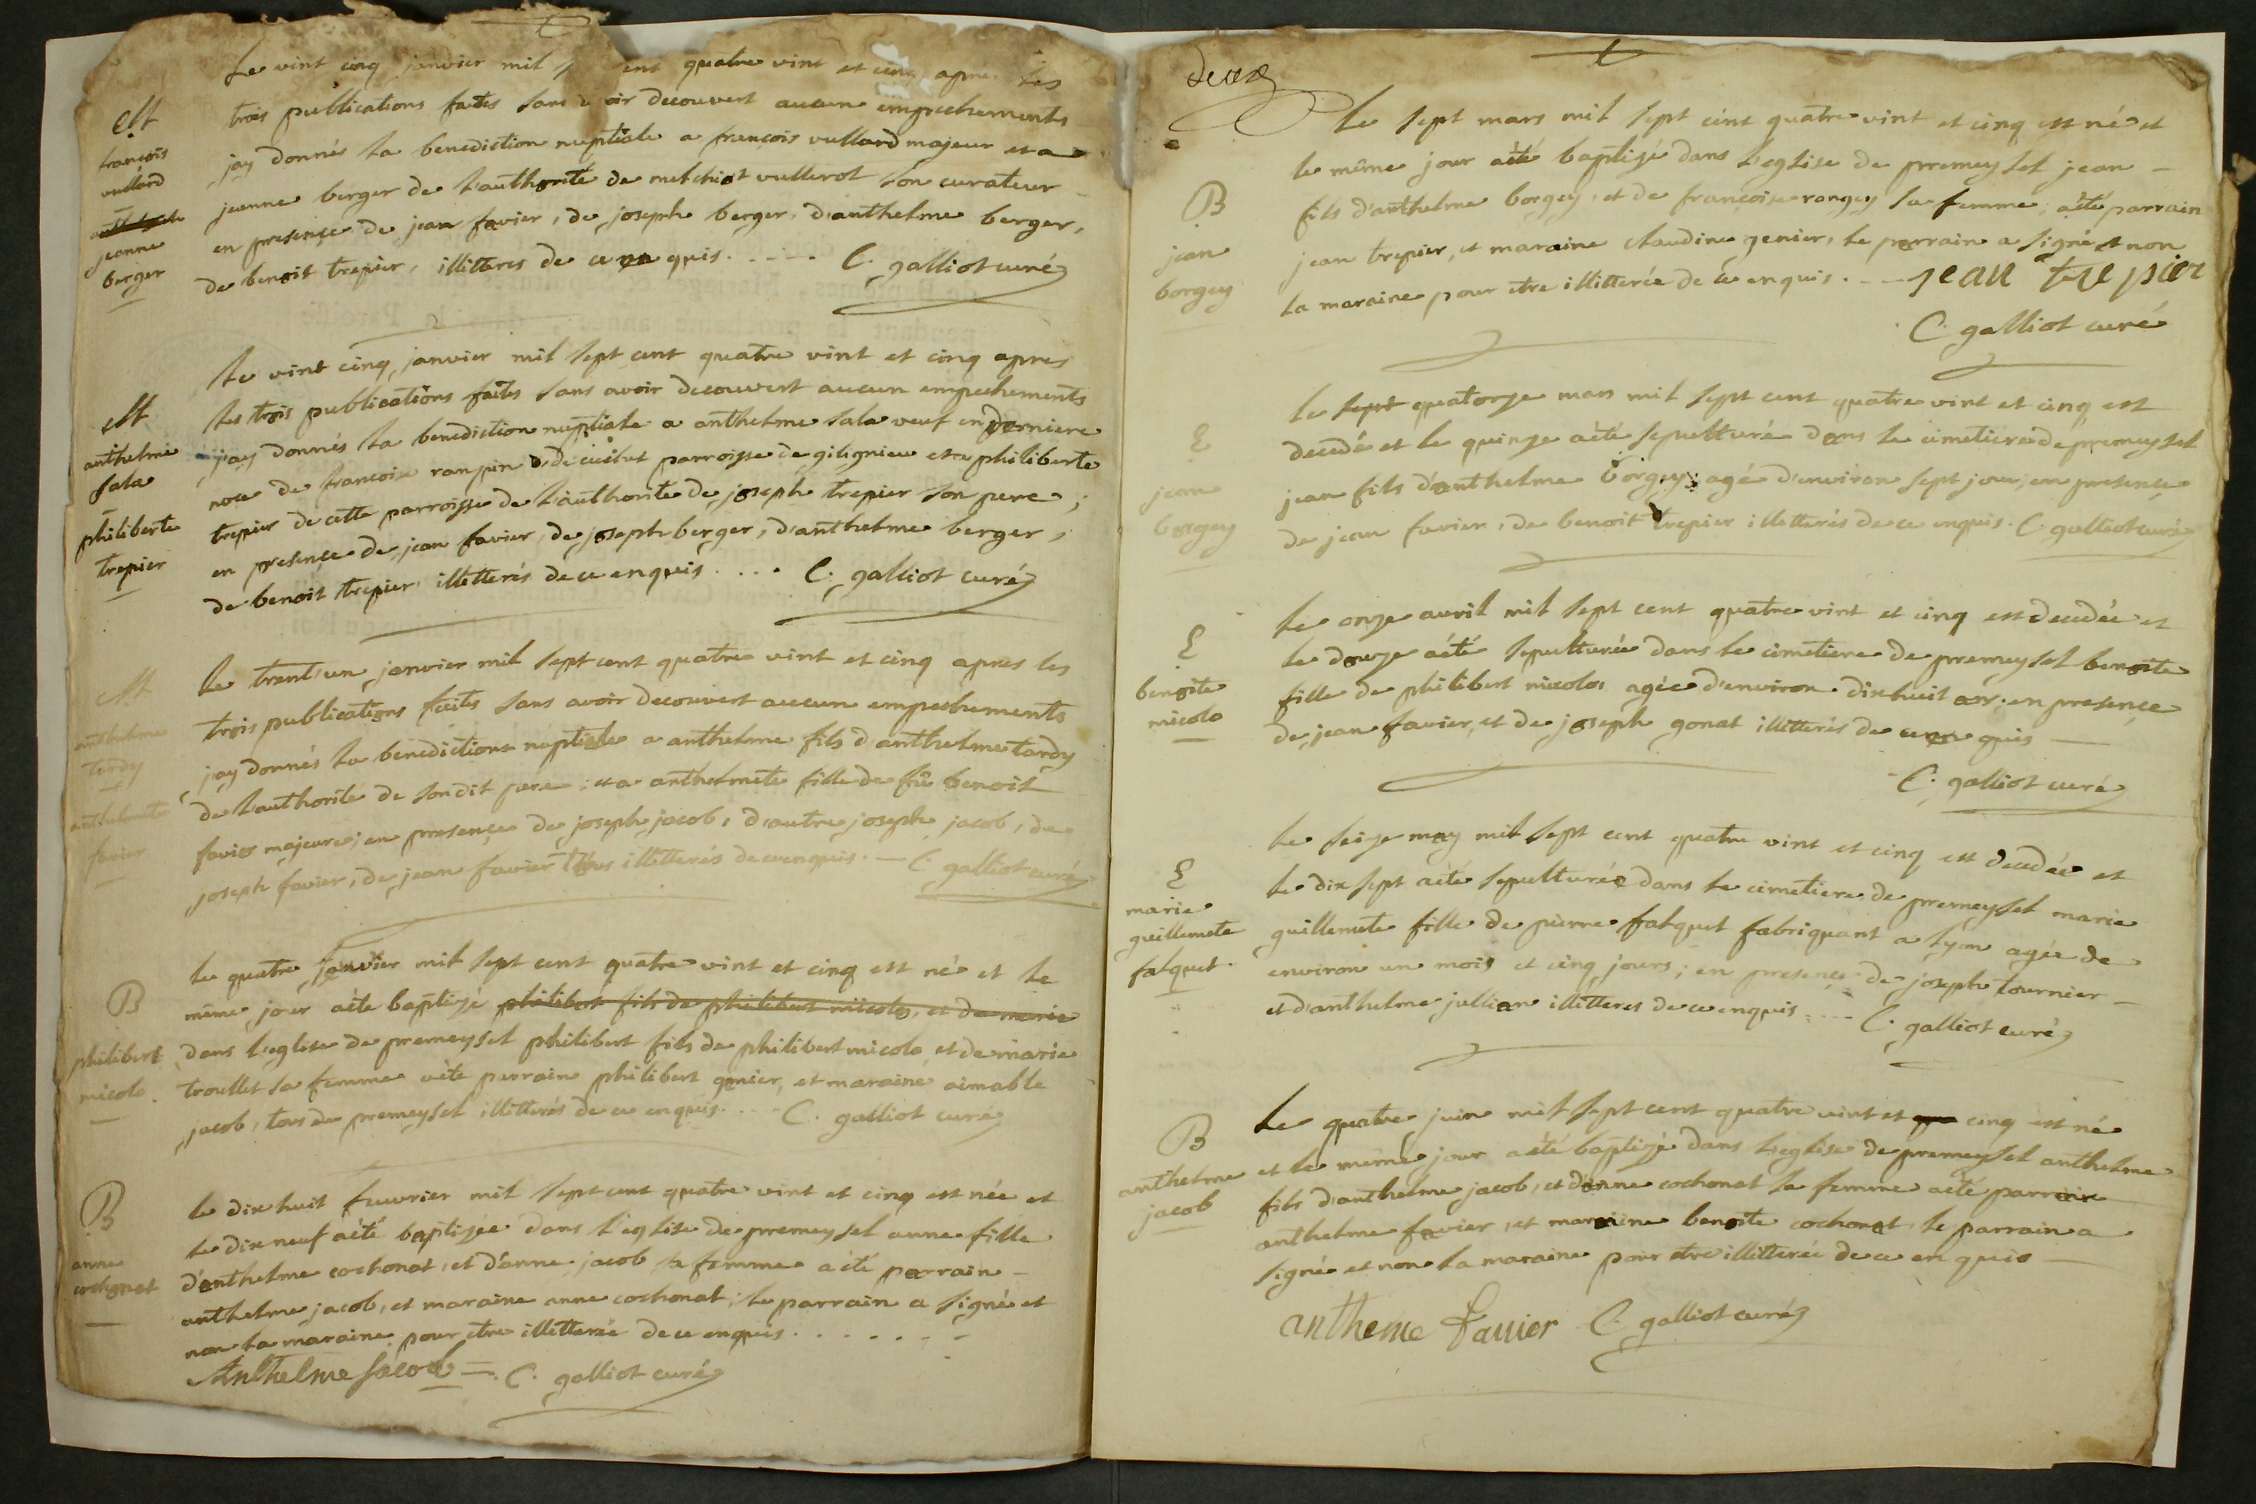 M
françois
vullard
jeanne
berger
Le vint cinq janvier mil ent quatre vint et cinq apres les
trois publications faites sans avoir decouvert aucun empechements
jay donnés la benediction nuptiale a françois vullard majeur et a
jeanne berger de l'authorité de melchiot vullerot son curateur
en presençe de jean favier, de joseph berger, d'anthelme berger,
de benoit trepier, illitterés de ce enquis. - - - - C. galliot curé
M
anthelme
sala
philiberte
trepier
Le vint cinq janvier mil sept cent quatre vint et cinq apres
les trois publications faites sans avoir decouvert aucun empechements
jay donnés la benediction nuptiale a anthelme sala veuf en derniere
noce de françoise rampin parroisse de gilignieu et a philiberte
trepier de cette parroisse de l'authorité de joseph trepier son pere;
en presençe de jean favier, de joseph berger, d'anthelme berger,
de benoit trepier, illitterés de ce enquis. . . . C. galliot curé
M
anthelme
tardy
anthelmete
favier
Le trent'un janvier mil sept cent quatre vint et cinq apres les
trois publications faites sans avoir decouvert aucun empechements
jay donnés la benediction nuptiale a anthelme fils d'anthelme tardy
de l'authorité de son dit pere; et a anthelmete fille de fû benoit
favier majeure; en presençe de joseph jacob, d'autre joseph jacob, de
joseph favier, de jean favier tous illitterés de ce enquis. — C. galliot curé
B
philibert
micolo
Le quatre janvier mil sept cent quatre vint et cinq est né et le
même jour aété baptizé philibert fils de philibert micolo, et de marie
dans l'eglise de premeysel philibert fils de philibert micolo, et de marie
troullet sa femme aété parrain philibert genier, et maraine aimable
jacob, tous de premeysel illitterés de ce enquis. . . . C. galliot curé
B
anne
cochonat
Le dix huit fevvrier mil sept cent quatre vint et cinq est née et
le dix neuf aété baptizée dans l'eglise de premeysel anne fille
d'anthelme cochonat, et d'anne jacob sa femme aété parrain -
anthelme jacob, et maraine anne cochonat; le parrain a signé et
non la maraine pour être illitterée de ce enquis. . . . . . .
Anthelme Jacob C. galliot curé
deux
B
jean
borgey
Le sept mars mil sept cent quatre vint et cinq est né et
le même jour aété baptizé dans l'eglise de premeysel jean -
fils d'anthelme borgey, et de françoise rongey sa femme; aété parrain
jean trepier, et maraine claudine genier, le parrain a signé et non
la maraine pour être illitterée de ce enquis. - - jean trepier
C. galliot curé
E
jean
borgey
Le sept quatorze mars mil sept cent quatre vint et cinq est
decedé et le quinze aété sepulturé dans le cimetiere de premeysel
jean fils d'anthelme borgey; agé d'environ sept jour; en presençe
de jean favier, de benoit trepier illitterés de ce enquis. C. galliot curé
E
benoite
micolo
Le onze avril mil sept cent quatre vint et cinq est decedée et
le douze aété sepulturée dans le cimetiere de premeysel benoite
fille de philibert micolo, agée d'environ dix huit en presençe
de jean favier, et de joseph gonat illitterés de ce enquis —
C. galliot curé
E
marie
guillemete
falquet
Le seize may mil sept cent quatre vint et cinq est decedée et
le dix sept aété sepulturée dans le cimetiere de premeysel marie
guillemete fille de pierre falquet fabriquant a lyon agée de
environ un mois et cinq jours; en presençe de joseph tournier -
et d'anthelme jullian illitteres de ce enquis. - - - C. galliot curé
B
anthelme
jacob
Le quatre juin mil sept cent quatre vint et cinq est né
et le même jour aété baptizé dans l'eglise de premeysel anthelme
fils d'anthelme jacob, et d'anne cochonat sa femme aété parrain
anthelme favier, et maraine benoite cochonat, le parrain a
signé et non la maraine pour être illitterée de ce enquis —
antheme favier C. galliot curé